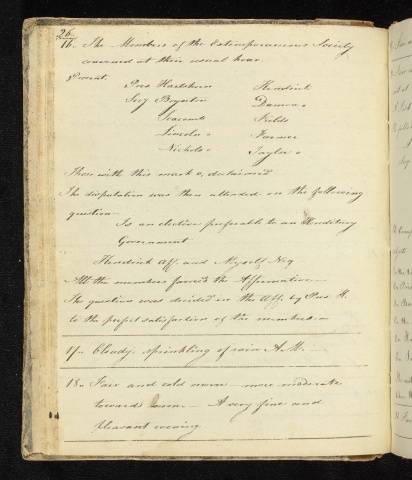 26.
16. The Members of the Extemporaneous Society
convened at their usual hour.
Present.
Pres Hartshorn Hendrick
Secy Boynton Damon
Seacomb Fields
Lincoln o Farmer
Nichols o Taylor o
Those with this mark o, declaimed
The disputation was then attended on the following
question
Is an elective preferable to an Hereditary
Government
Hendrick Aff. and Myself Neg
All the members favored the Affirmative
The question was decided in the Aff. by Pres H.
to the perfect satisfaction of the members.
17. Cloudy, sprinkling of rain A.M.
18. Fair and cold morn more moderate
towards noon A very fine and
pleasant evening.